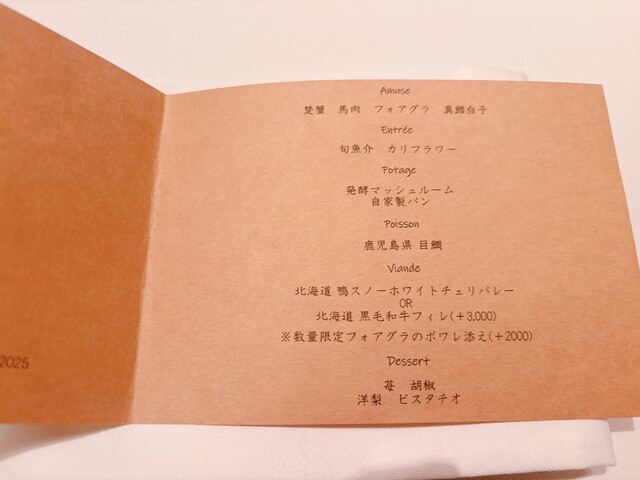 Amuse
楚蟹 馬肉 フォアグラ 真鱈白子
Entrée
旬魚介 カリフラワー
Potage
発酵マッシュルーム
自家製パン
Poisson
鹿児島県 目鯛
Viande
北海道 鴨スノーホワイトチェリバレー
OR
北海道 黒毛和牛フィレ(+3,000)
※数量限定フォアグラのポワレ添え(+2000)
Dessert
苺 胡椒
洋梨 ピスタチオ
2025